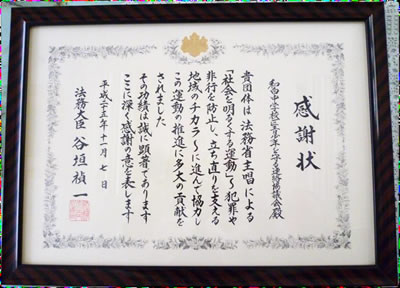 感謝状
和田中学校区青少年を守る連絡協議会殿
貴団体は法務省主唱による
「社会を明るくする運動」～犯罪や
非行を防止し、立ち直りを支える
地域のチカラ～に進んで協力し
この運動の推進に多大の貢献を
されました
その功績は誠に顕著であります
ここに深く感謝の意を表します
平成二十五年十一月七日
法務大臣 谷垣禎一